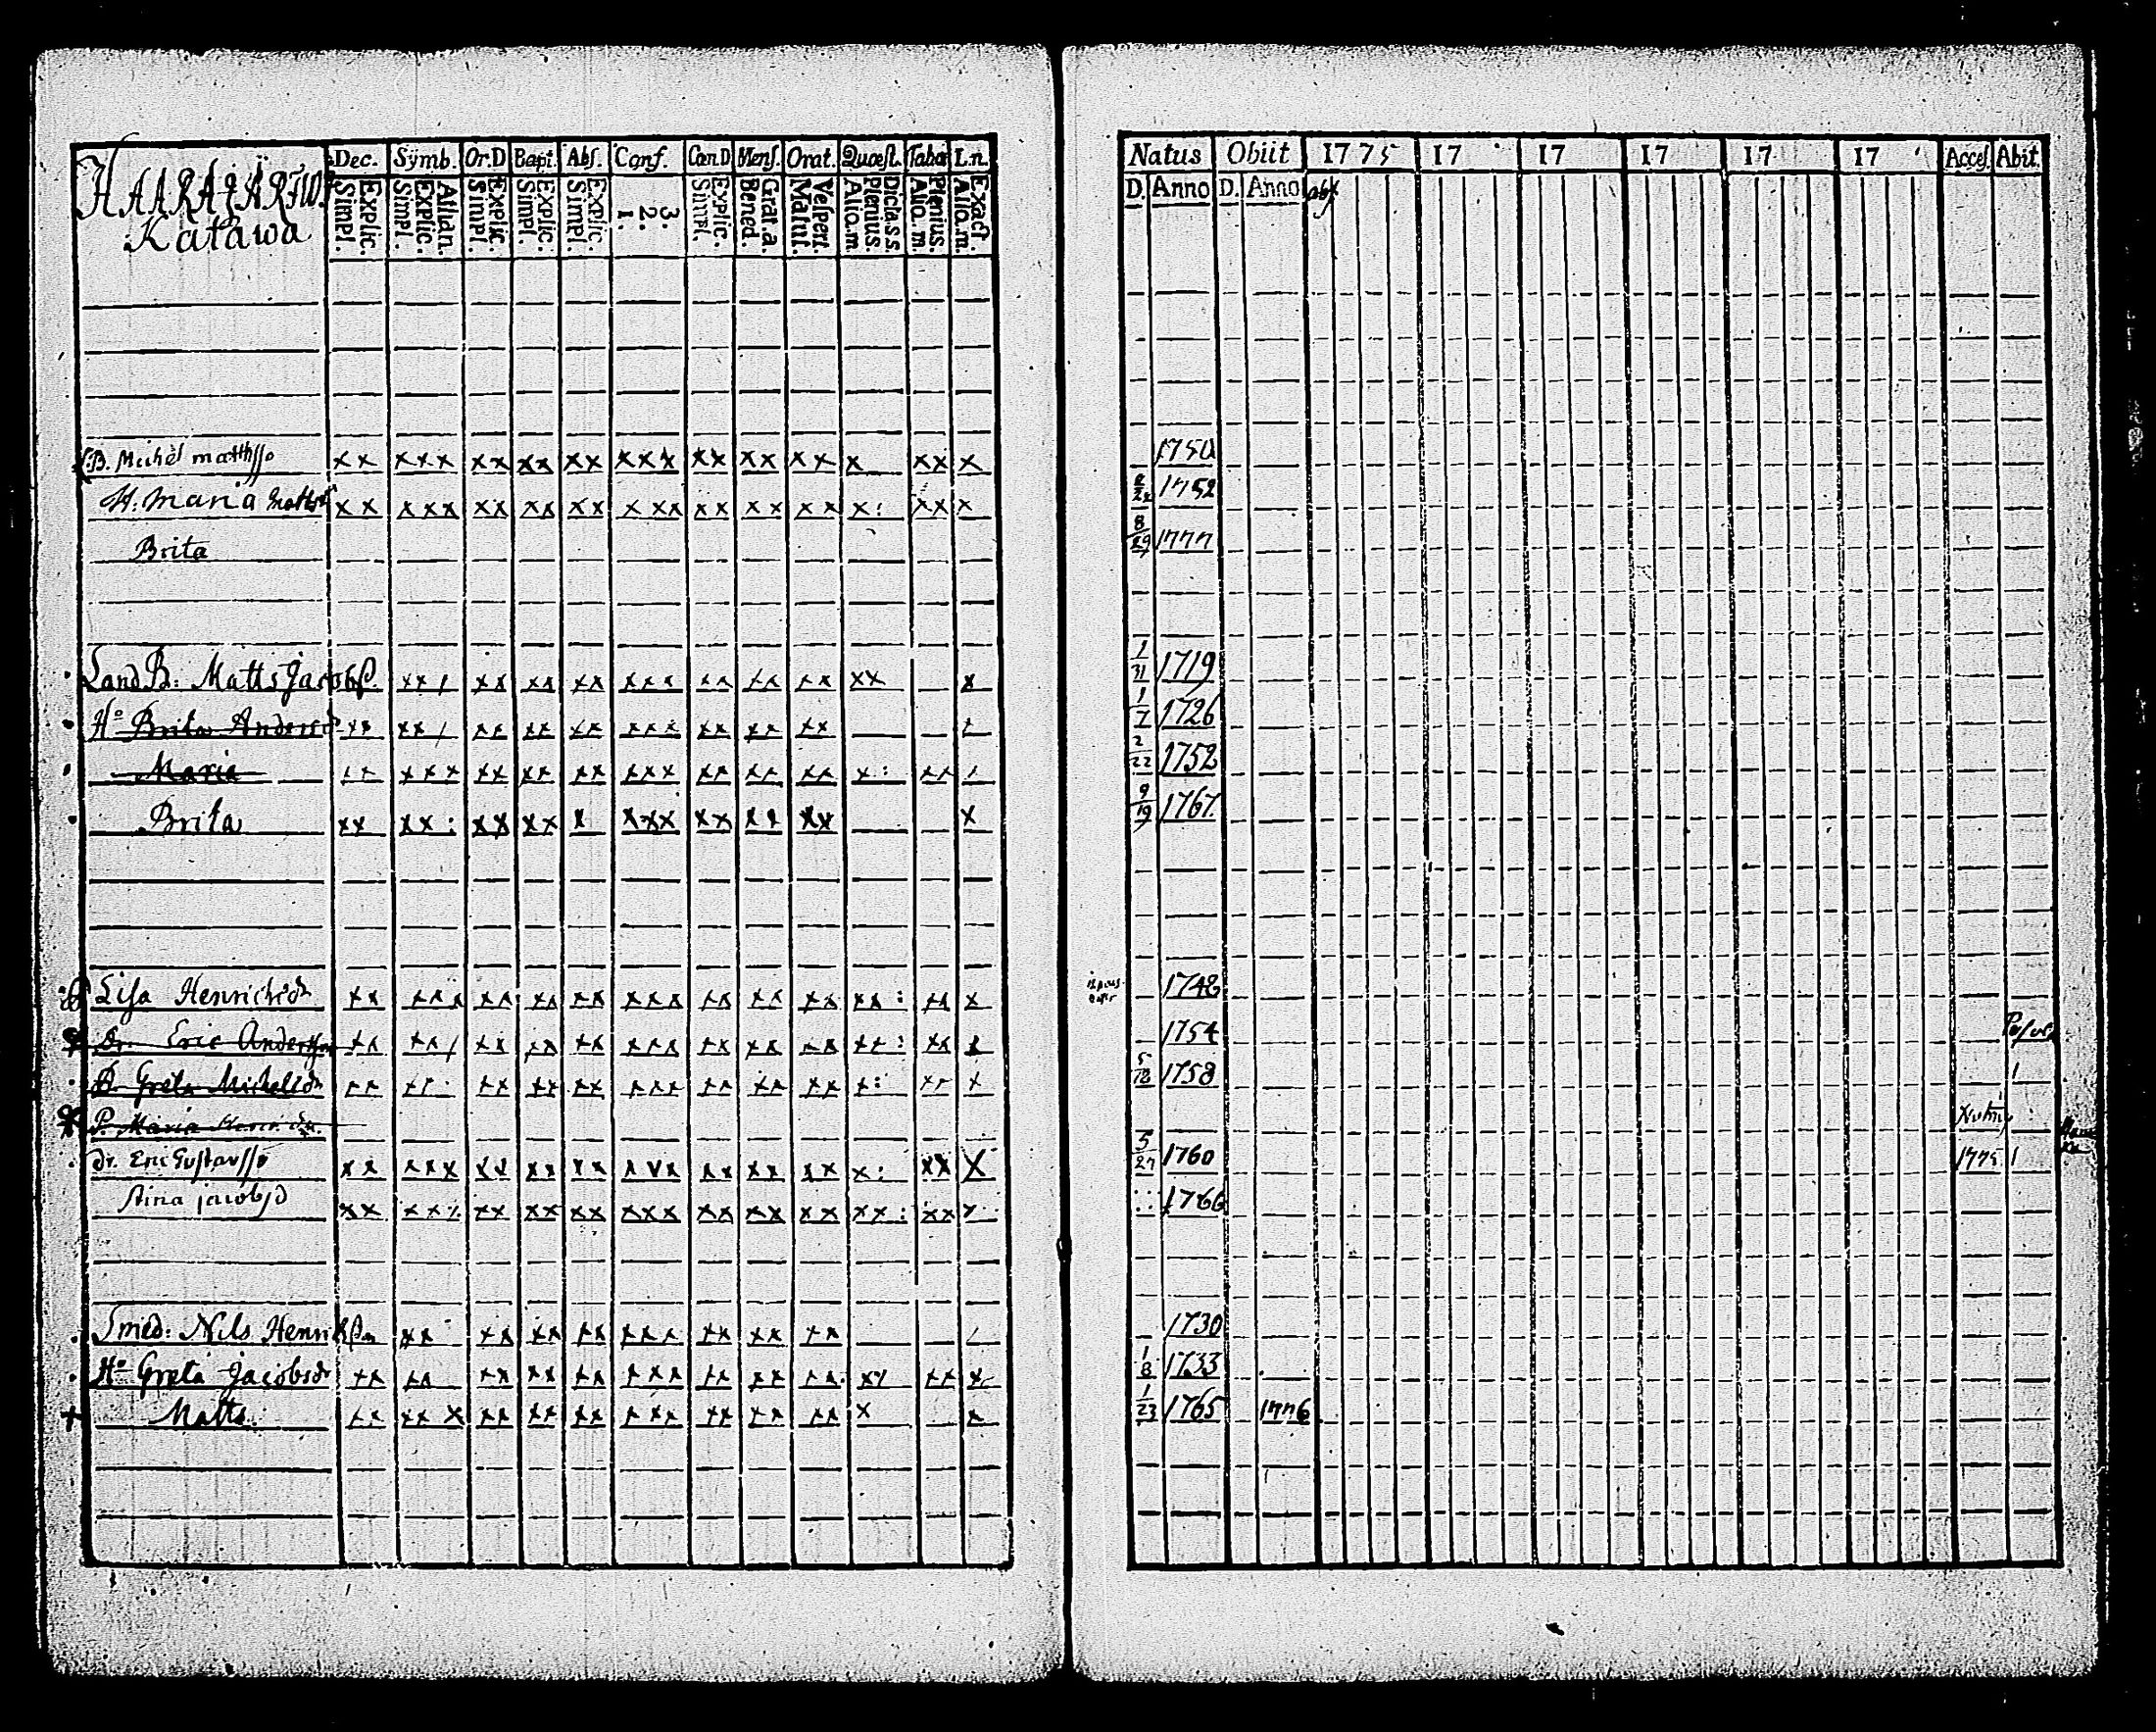 Dec. Symb. Or.D Bapt. Abs. Conf. Can.D Mens. Orat. Quæst. Taba L.n.
Katawa
Simpl. Explic. Simpl. Explic. Athan. Simpl. Explic. Simpl. Explic: Simpl. Explic. 1. 2. 3. Simpl. Explic. Bened. Grat.a. Matut. Vespert. Alio.m. Plenius. Dicta.s.s. Alio.m Plenius. Alio.m. Exact.
B. Michel matthsso xx xxx xx xx xx xxx xx xx xx x xx x
H. Maria xx xxx xx xx xx xxx xx xx xx x: xx x
Brita
Land B: Matts Jacobss. xx/ xx xx xx xxx xx xx xx xx x
Hº Brita Andersd xx xx/ xx xx xx xxx xx xx xx
Maria xx xxx xx xx xx xxx xx xx xx x: xx
Brita xx xx: xx xx x xxx xx xx xx x
Lisa Henrichsd xx xxx xx xx xx xxx xx xx xx xx: xx x
Dr. Eric Anderss xx xx/ xx xx xx xxx xx xx xx xx: xx x
P. Greta Michelsd xx xx xx xx xx xxx xx xx xx x: xx x
P. Maria
dr. Eric Gustafsso xx xxx xx xx xx xxx xx xx xx x: xx x
Stina jacobsd xx xxx xx xx xx xxx xx xx xx xx: xx x
Smed: Nils Henrichss xx xx xx xx xxx xx xx xx
Hº Greta Jacobsd xx xx xx xx xx xxx xx xx xx xx xx x
+ Matts xx xxx xx xx xx xxx xx xx xx x x
Natus Obiit 1775 17 17 17 17 17 Acces Abit.
D. Anno D. Anno
1750
2/22 1752
8/29 1777
1/31 1719
1/7 1726
2/22 1752
9/19 1767
1748
1754
5/18 1758 1
5/27 1760 1775 1
1766
1730
1/8 1733
1/23 1765 1776